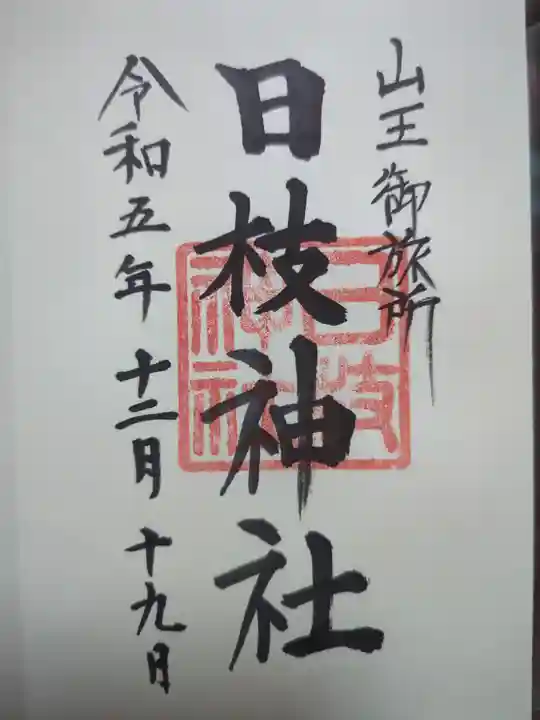 山王御旅所
日枝神社
日枝
神社
令和五年十二月十九日